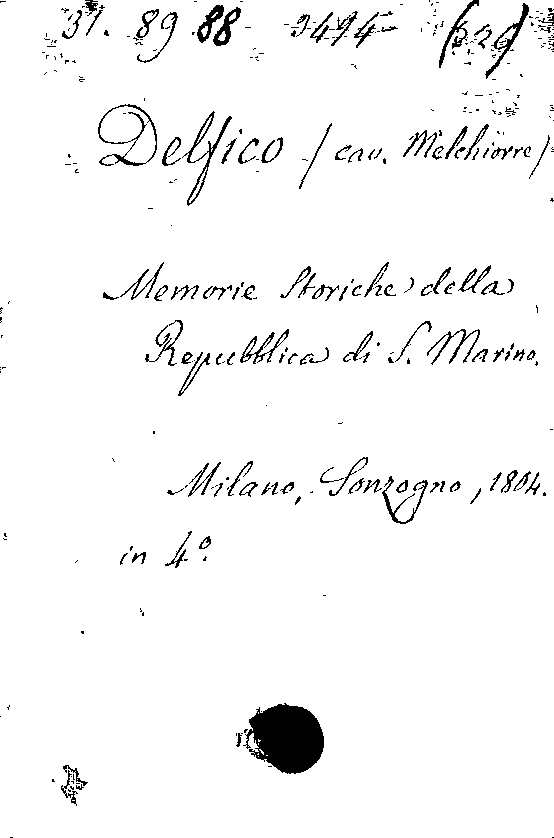 31. 89 88 3494 (329)
Delfico / cav. Melchiorre /
Memorie Storiche della
Repubblica di S. Marino.
Milano, Sonzogno, 1804.
in 4º.